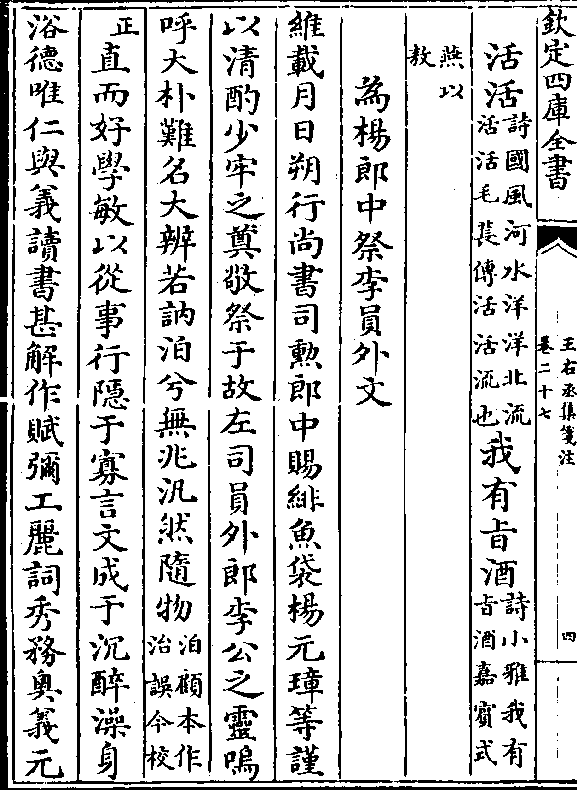 欽定四庫全書
王右丞集箋注
卷二十七
四
活活詩國風河水洋洋北流
活活毛萇傳活活流也我有旨酒詩小雅我有
旨酒嘉賓式
燕以
敖
為楊郎中祭李員外文
維載月日朔行尚書司勲郎中賜緋魚袋楊元璋等謹
以清酌少牢之奠敬祭于故左司員外郎李公之靈嗚
呼大朴難名大辨若訥泊兮無兆汎然隨物泊顧本作
治誤今校
正
直而好學敏以從事行隱于寡言文成于沉醉澡身
浴德唯仁與義讀書甚解作賦彌工麗詞秀務奥義元